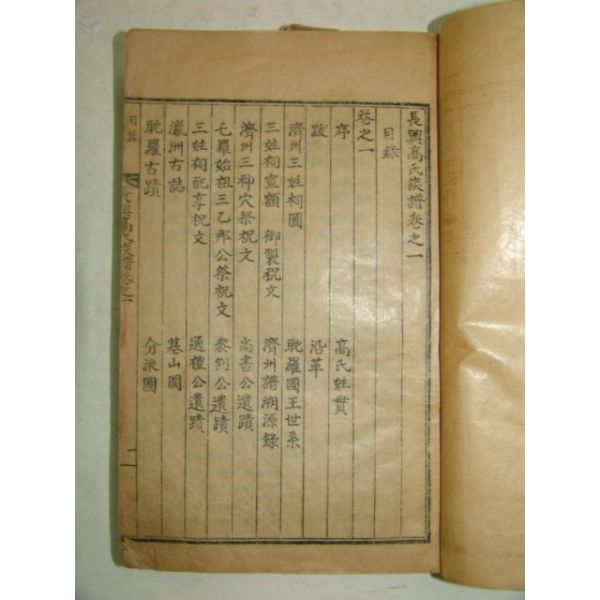 長興高氏族譜卷之一
目錄
卷之一
序 高氏姓貫
跋 沿革
濟州三姓祠圖 耽羅國王世系
三姓祠宣額 御製祝文 濟州譜溯源錄
濟州三神穴祭祝文 尚書公遺蹟
毛羅始祖三乙那公祭祝文 參判公遺蹟
三姓祠配享祝文 通禮公遺蹟
瀛洲古誌 墓山圖
耽羅古蹟 分派圖
目錄 長興高氏族譜卷之一 一